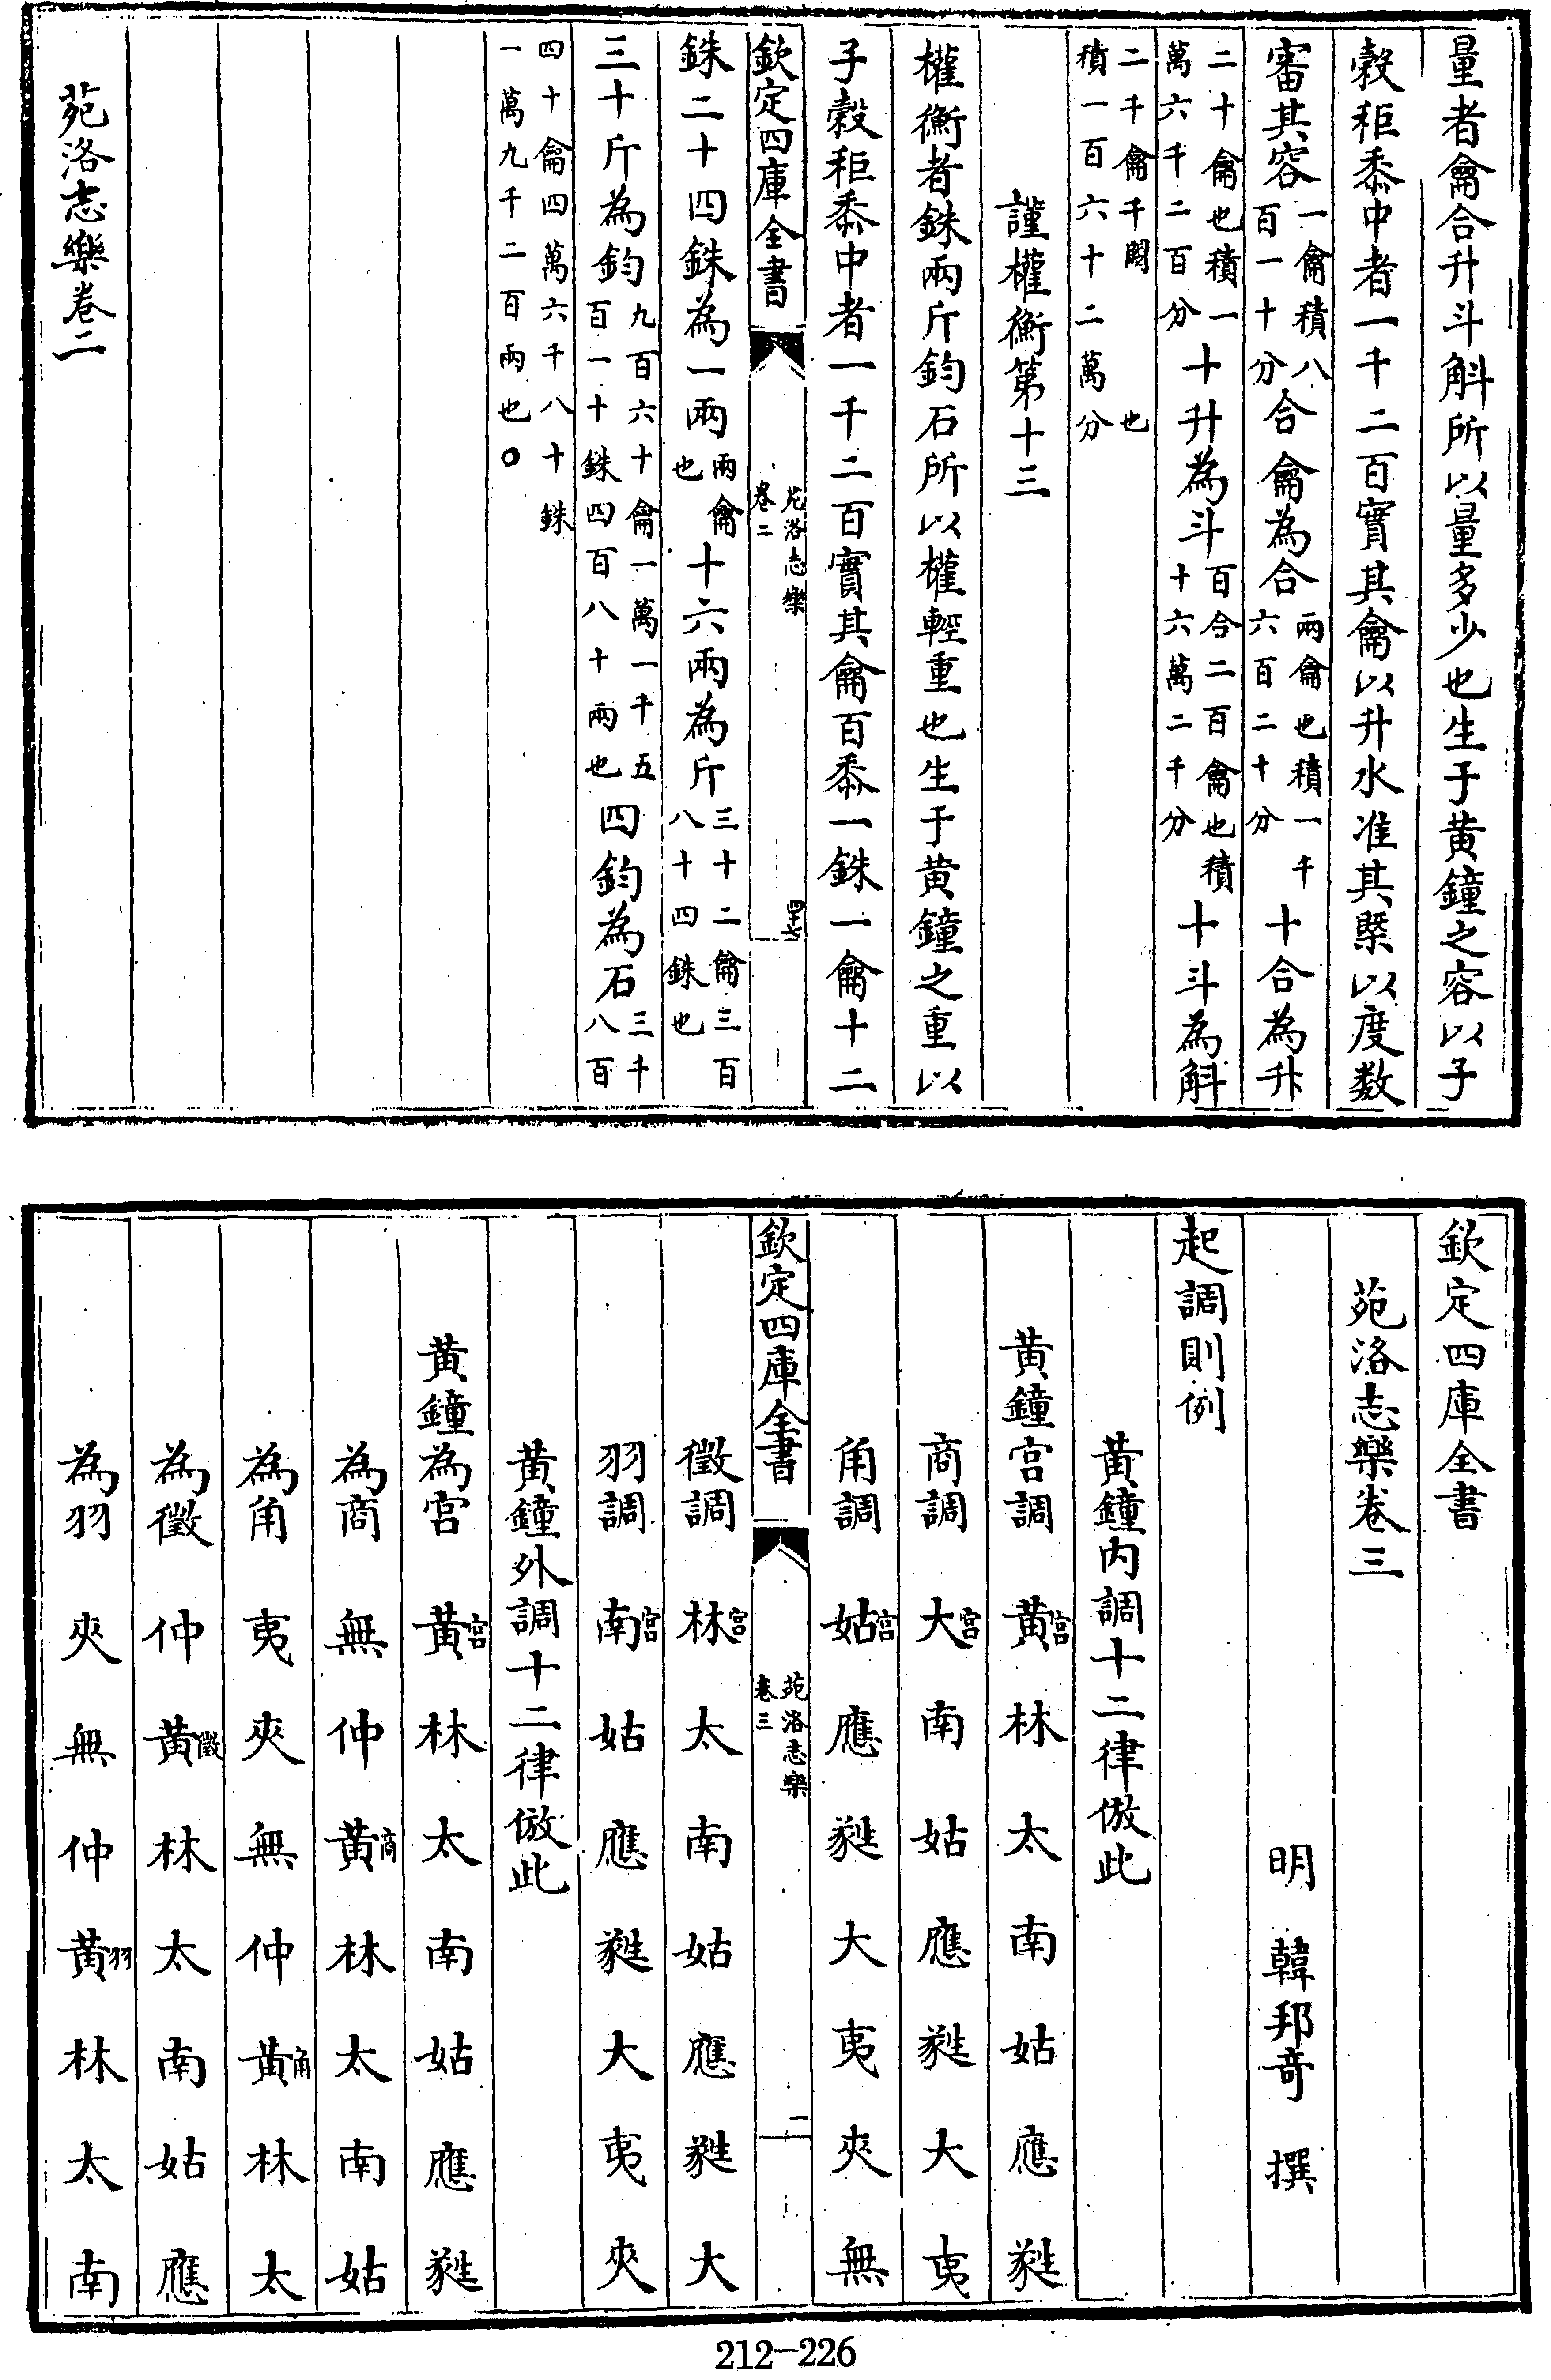 量者龠合升斗斛所以量多少也生于黄鐘之容以子
穀秬黍中者一千二百實其龠以升水准其槩以度数
審其容一龠積八百一十分合龠為合兩龠也積一千六百二十分十合為升
二十龠也積一萬六千二百分十升為斗百合二百龠也積十六萬二千分十斗為斛
二千龠千闕也積一百六十二萬分
謹權衡第十三
權衡者銖兩斤鈞石所以權輕重也生于黄鐘之重以
子穀秬黍中者一千二百實其龠百黍一銖一龠十二
欽定四庫全書
苑洛志樂
卷二
四十七
銖二十四銖為一兩兩龠也十六兩為斤三十二龠三百八十四銖也
三十斤為鈞九百六十龠一萬一千五百一十銖四百八十兩也四鈞為石三千八百
四十龠四萬六千八十銖一萬九千二百兩也○
苑洛志樂卷二
欽定四庫全書
苑洛志樂卷三
明 韓邦奇 撰
起調則例
黄鐘内調十二律倣此
黄鐘宫調 黄宫 林 太 南 姑 應 蕤
商調 大宫 南 姑 應 蕤 大 夷
角調 姑宫 應 蕤 大 夷 夾 無
欽定四庫全書
苑洛志樂
卷三
一
徵調 林宫 太 南 姑 應 蕤 大
羽調 南宫 姑 應 蕤 大 夷 夾
黄鐘外調十二律倣此
黄鐘為宫 黄宫 林 太 南 姑 應 蕤
為商 無 仲 黄商 林 太 南 姑
為角 夷 夾 無 仲 黄角 林 太
為徵 仲 黄徵 林 太 南 姑 應
為羽 夾 無 仲 黄羽 林 太 南
212-226